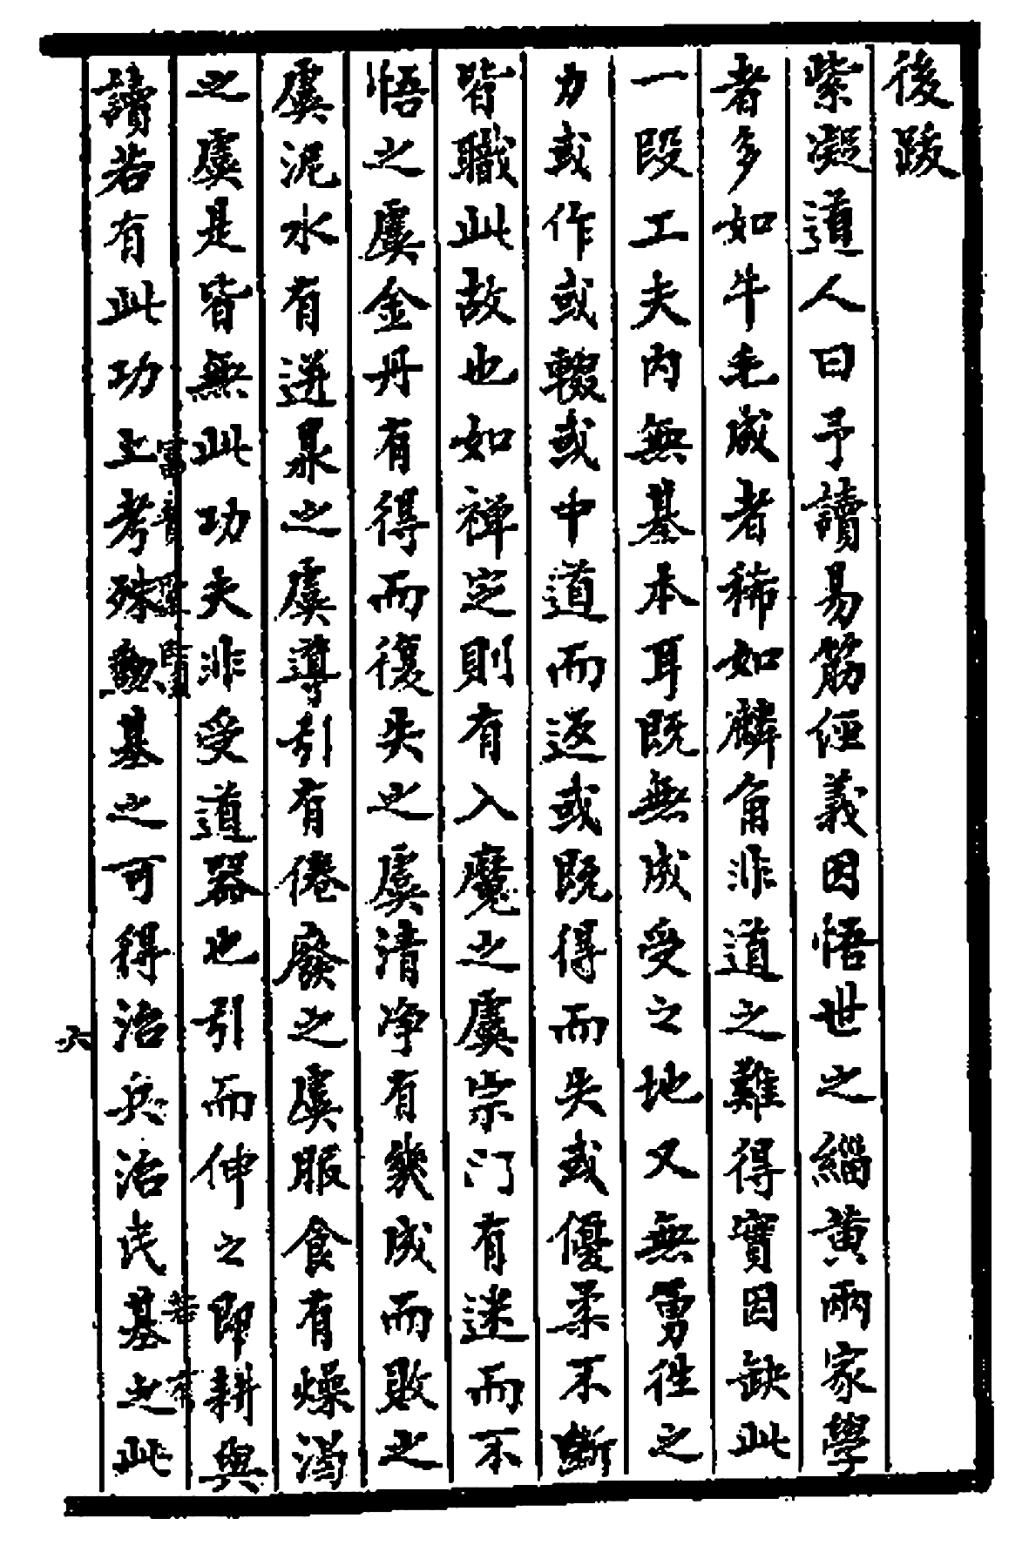 後跋
紫凝道人曰予讀易筋經義因悟世之緇黃兩家學
者多如牛毛成者稀如麟角非道之難得實因缺此
一段工夫內無基本耳既無成受之地又無勇往之
力或作或輟或中道而返或既得而失或優柔不斷
皆職此故也如禪定則有入魔之虞宗門有迷而不
悟之虞金丹有得而復失之虞清净有幾成而敗之
虞泥水有迸泉之虞導引有倦廢之虞服食有燥渴
之虞是皆無此功夫非受道器也引而伸之即耕與
讀若有此功上考殊勳基之可得治兵治民基之此
六